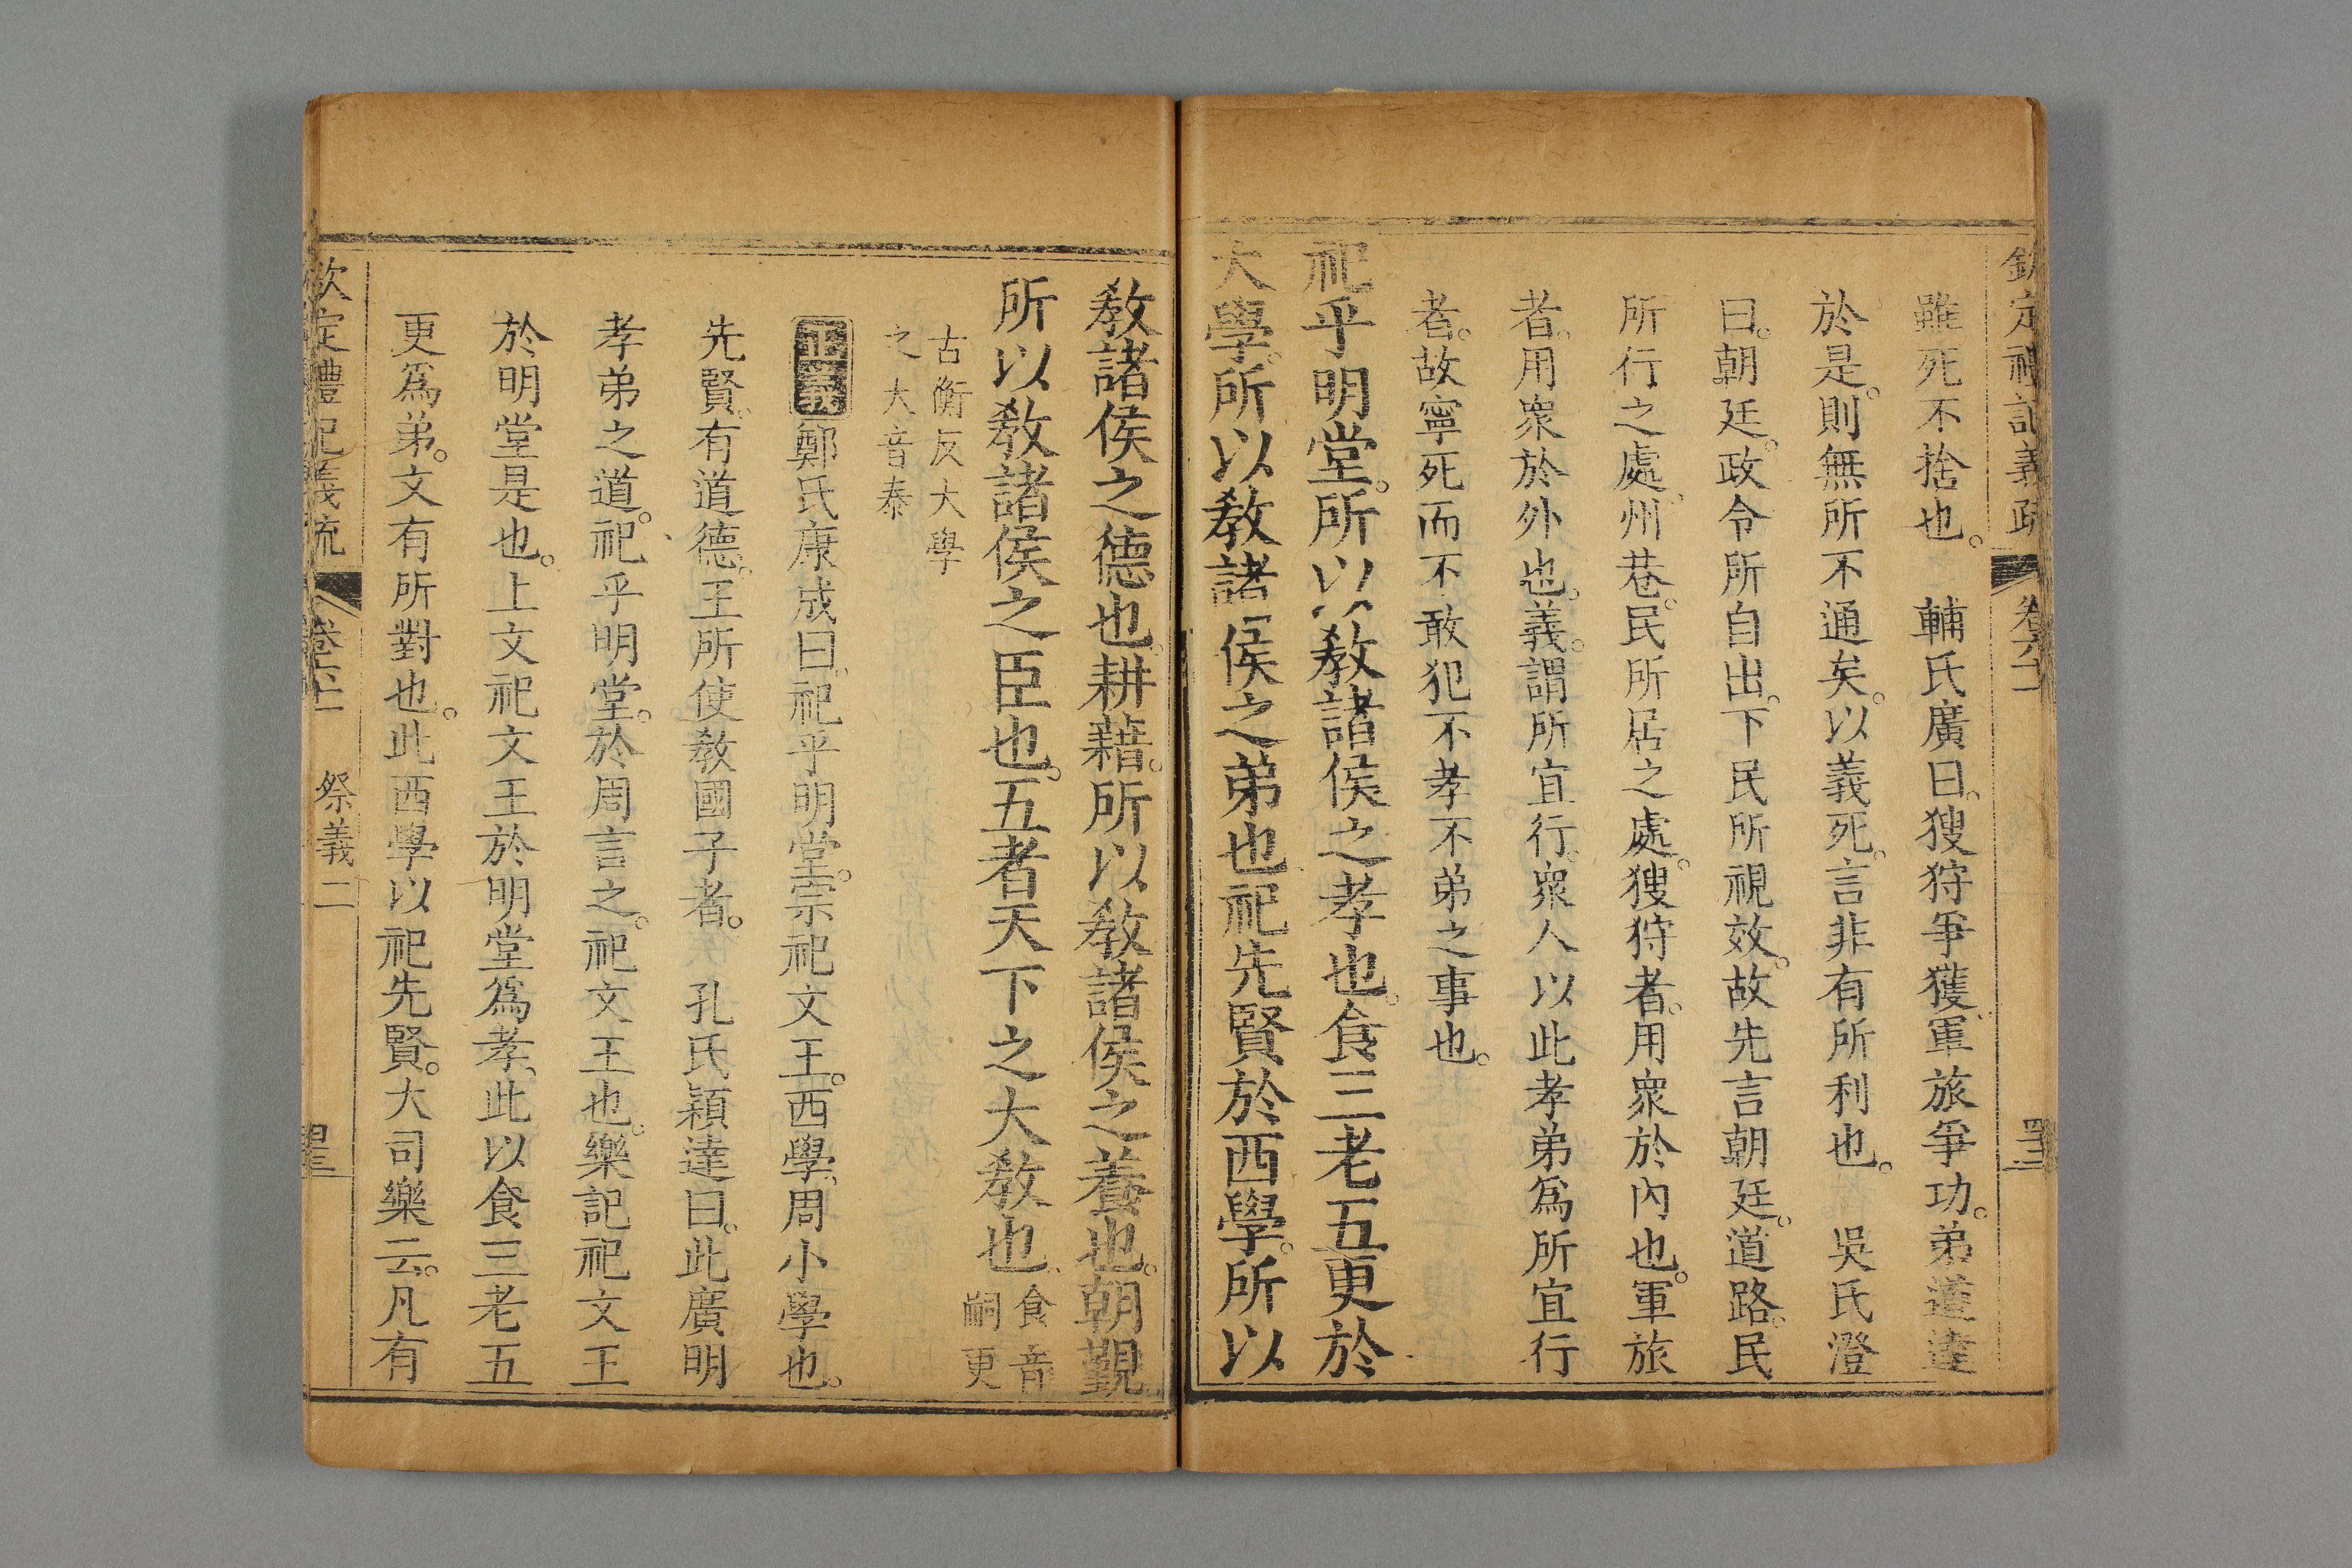 欽定禮記義疏 卷六十一
雖死不捨也。 輔氏廣曰。獀狩爭獲。軍旅爭功。弟道達
於是。則無所不通矣。以義死。言非有所利也。 吳氏澄
曰。朝廷。政令所自出。下民所視效。故先言朝廷。道路。民
所行之處。州巷。民所居之處。獀狩者。用衆於內也。軍旅
者。用衆於外也。義。謂所宜行。衆人以此孝弟爲所宜行
者。故寧死而不敢犯不孝不弟之事也。
祀乎明堂。所以敎諸侯之孝也。食三老五更於
大學。所以敎諸侯之弟也祀先賢於西學。所以
敎諸侯之德也。耕藉。所以敎諸侯之養也。朝覲。
所以敎諸侯之臣也。五者天下之大敎也。食音
嗣更
古衡反大學
之大音泰
正義 鄭氏康成曰。祀乎明堂。宗祀文王。西學。周小學也。
先賢。有道德。王所使敎國子者。 孔氏穎達曰。此廣明
孝弟之道。祀乎明堂。於周言之。祀文王也。樂記祀文王
於明堂是也。上文祀文王於明堂爲孝。此以食三老五
更爲弟。文有所對也。此西學以祀先賢。大司樂云。凡有
欽定禮記義疏 卷六十一 祭義二